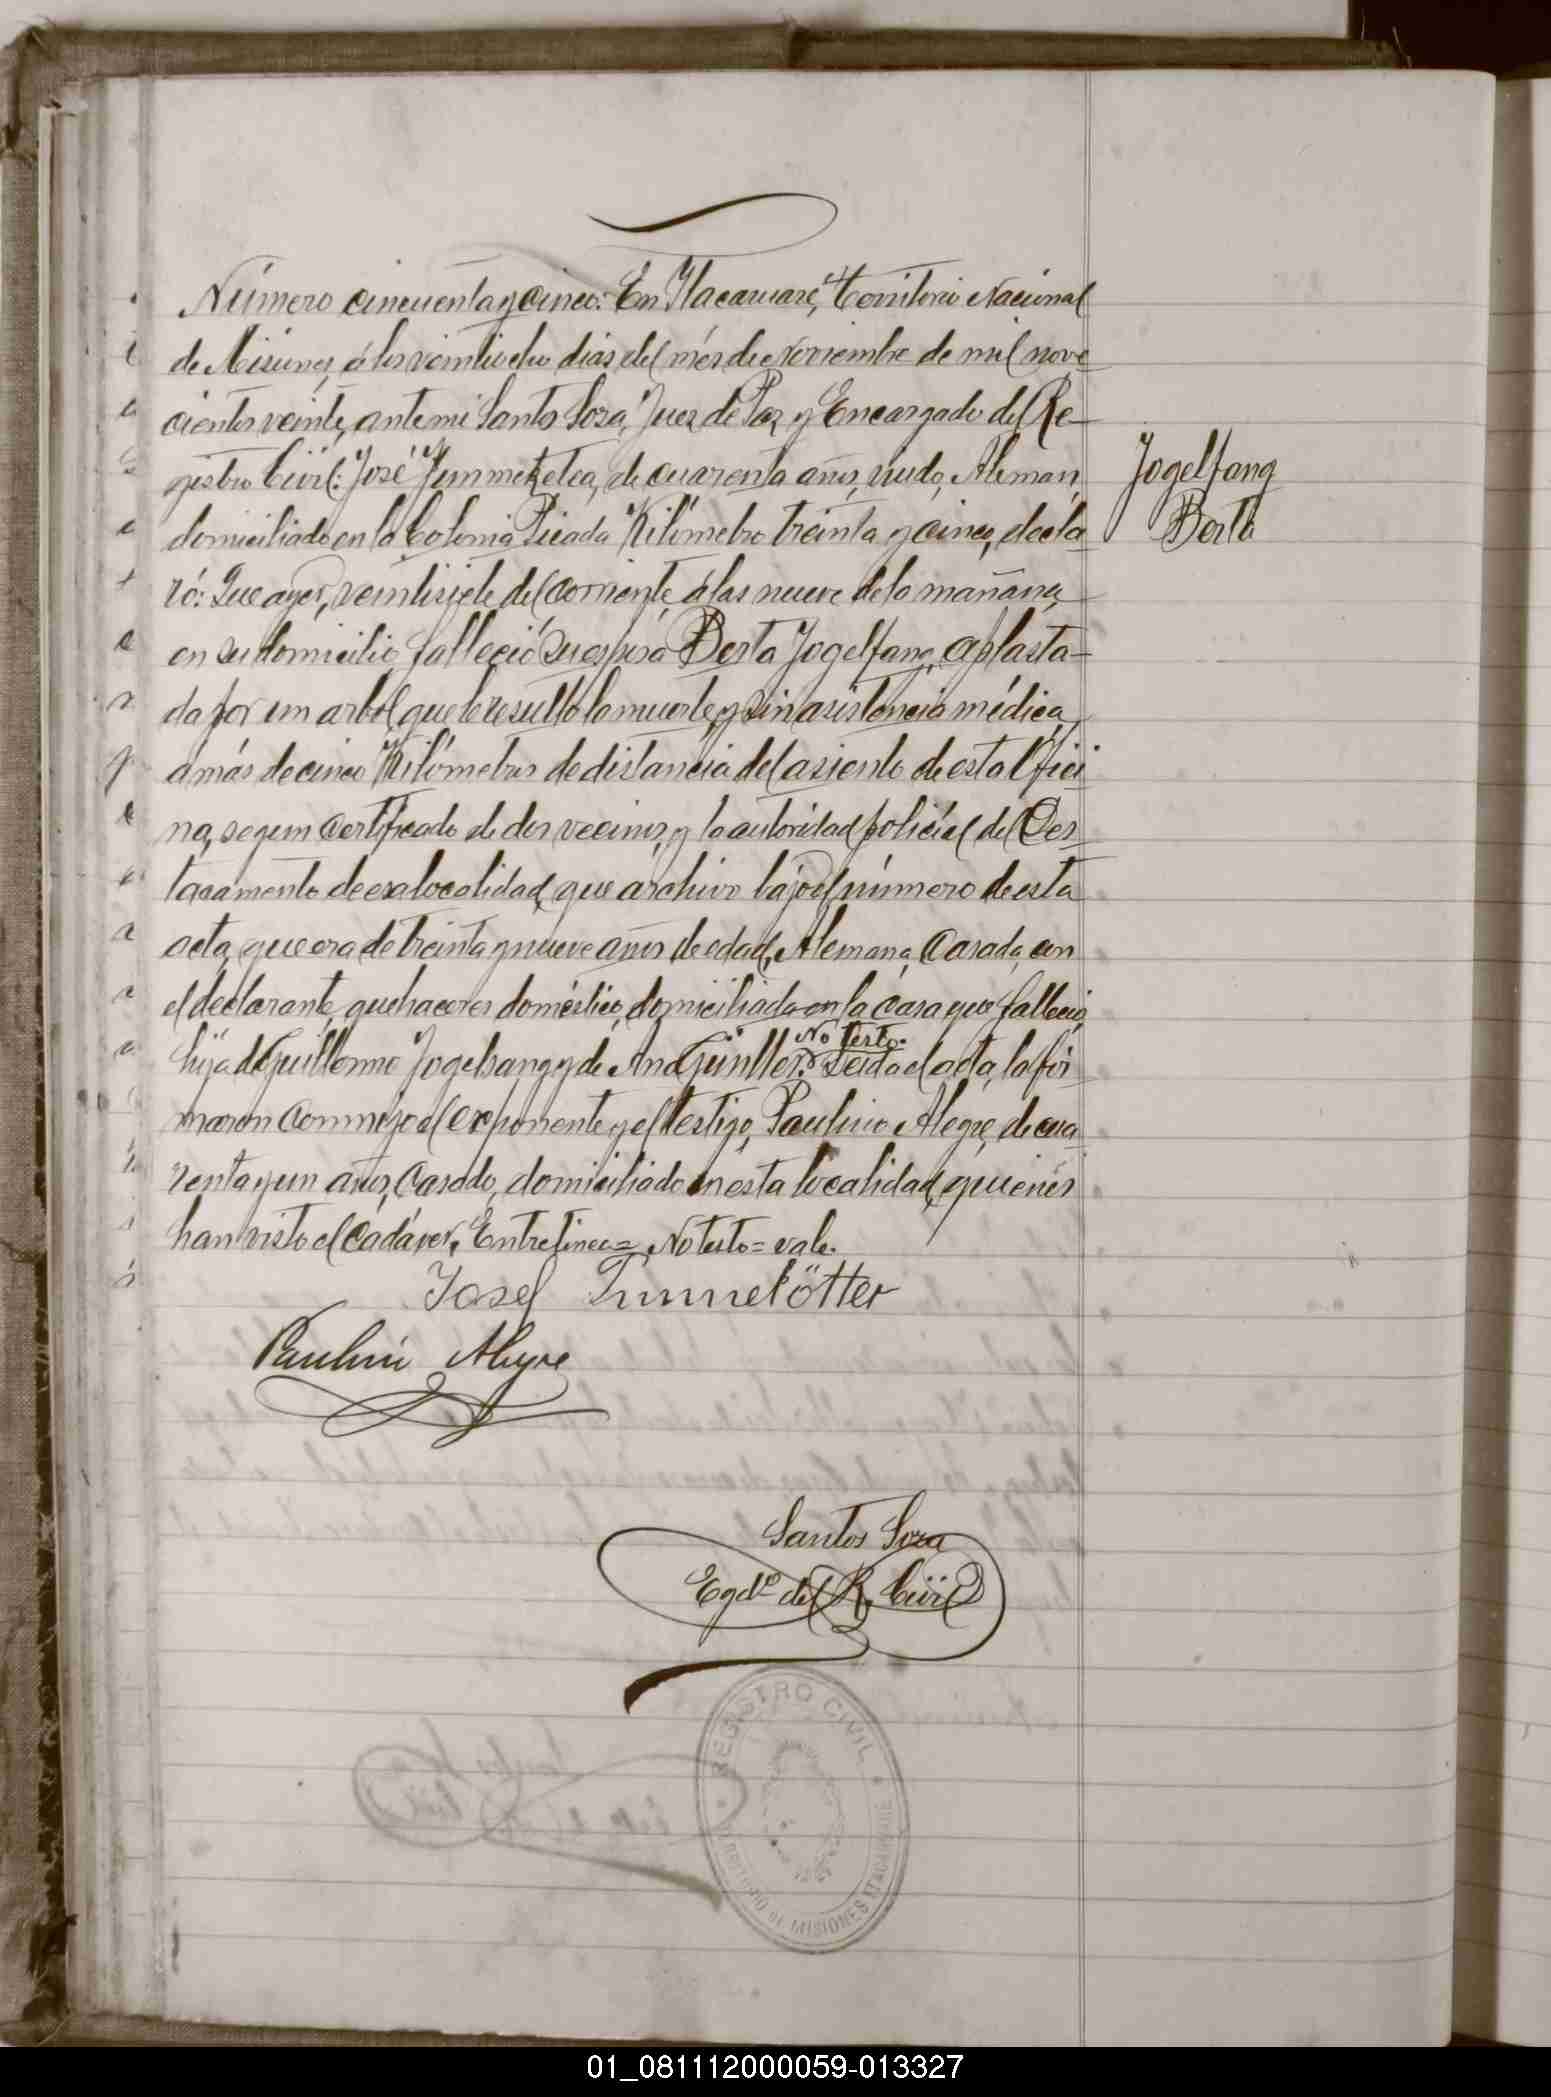 Número cincuenta y cinco: En Itacaruaré, Territorio Nacional
de Misiones, á los veintiocho dias del més de Noviembre de mil nove
cientos veinte, ante mi Santos Soza, Juez de Paz y Encargado del Re-
gistro Civil: José de cuarenta años, viudo, Aleman,
domiciliado en la Colonia Picada Kilómetro treinta y cinco, decla-
ró: Que ayer, veintisiete del corriente, á las nueve de la mañana,
en su domicilio falleció su esposa Berta Jogelfang, aplasta-
da por un arbol que le resultó la muerte, y sin asistencia médica,
a más de cinco Kilómetros de distancia del asiento de esta Ofici
na, segun certificado de dos vecinos, y la autoridad policial del Des-
tacamento de esa localidad, que archivo bajo el número de esta
acta, que era de treinta y nueve años de edad, Alemana, Casada, con
el declarante, quehaceres doméstico, domiciliada en la casa que falleció,
No testo.
hija de Guillermo Jogelsang y de Ana Leida el acta, la fir-
maron conmigo el exponente y el testigo, Paulino Alegre, de cua
renta y un años, Casado, domiciliado en esta localidad, quiénes
han visto el cadáver. Entrelinea= No testo= vale.
Josef Tummekötter
Paulino Alegre
Santos Soza
Egdo del R. Civil
Jogelfang
Berta
REGISTRO CIVIL
TERRITORIO DE MISIONES ITACARUARE
01_081112000059-013327